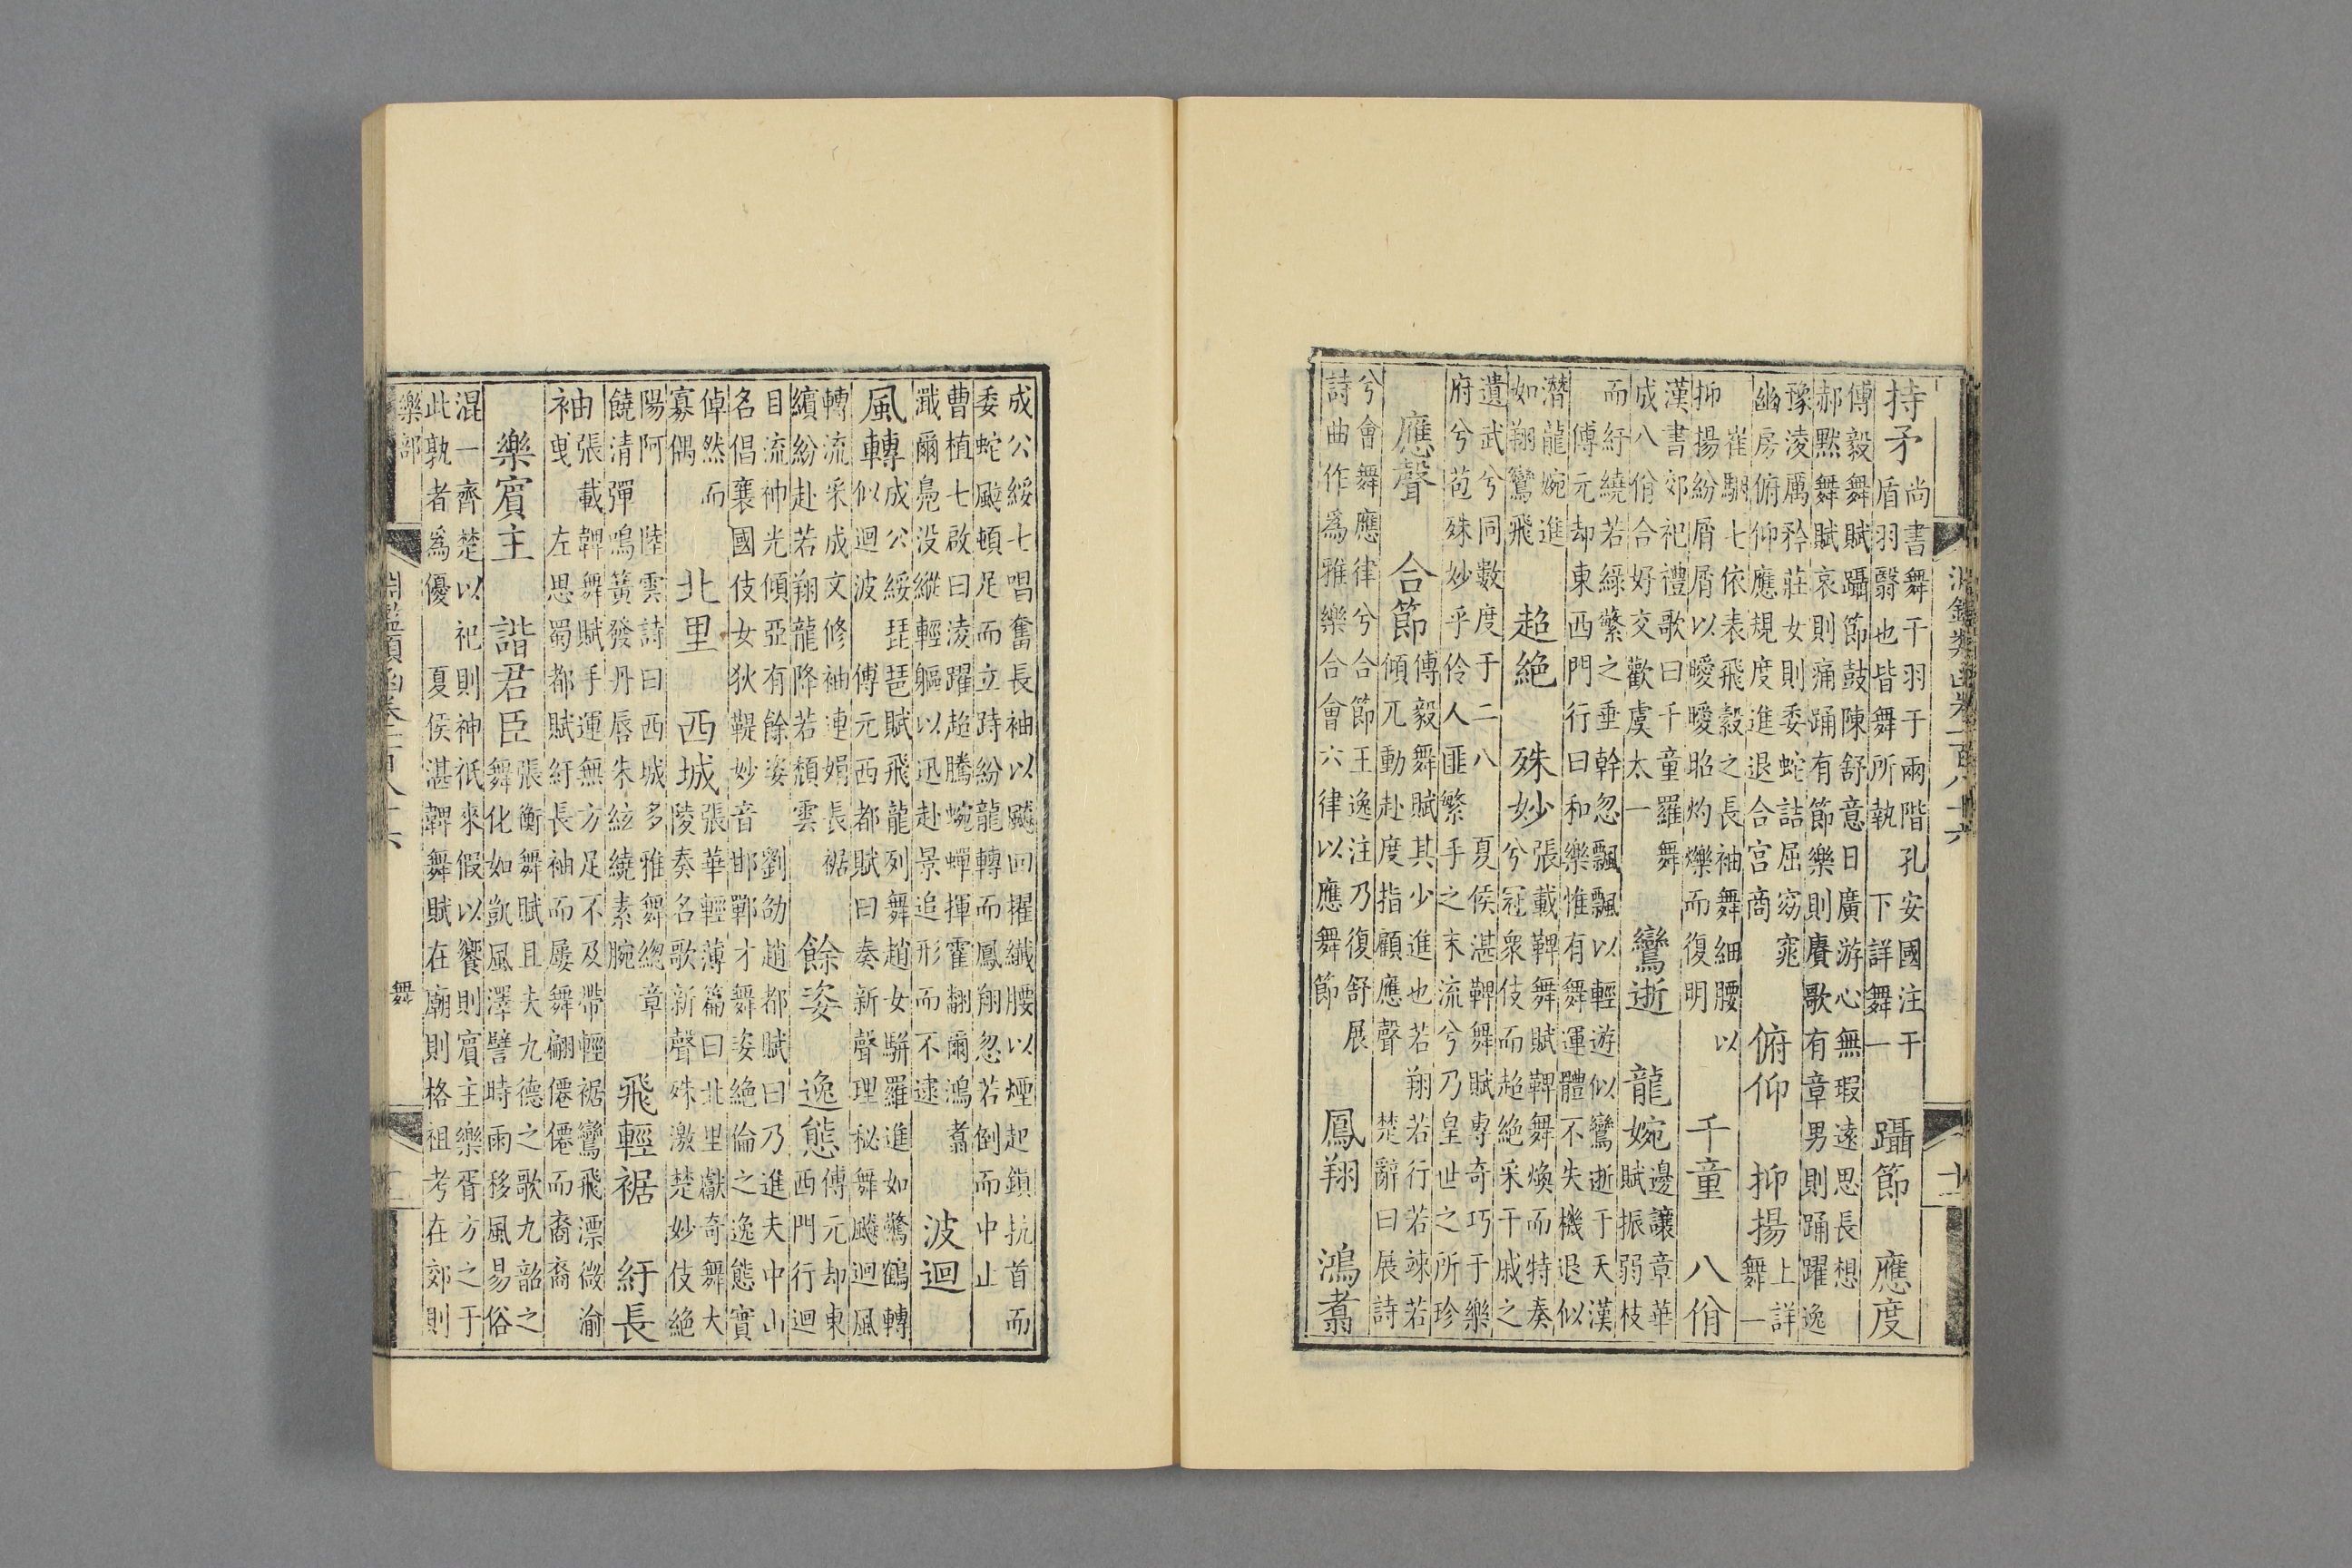 淵鑑類函卷二百八十六 十一
持矛
尚書舞干羽于兩階孔安國注干
盾羽翳也皆舞所執 下詳舞一
躡節 應度
傅毅舞賦躡節鼓陳舒意日廣游心無瑕遠思長想
郝黙舞賦哀則痛踊有節樂則賡歌有章男則踊躍逸
豫淩厲矜莊女則委蛇詰屈窈窕
幽房俯仰應規度進退合宮商
俯仰 抑揚
上詳
舞一
崔駰七依表飛縠之長袖舞細腰以
抑揚紛屑屑以曖曖昭灼爍而復明
千童 八佾
漢書郊祀禮歌曰千童羅舞
成八佾合好交歡虞太一
鸞逝 龍婉
邊讓章華
賦振弱枝
而紆繞若綠繁之垂幹忽飄飄以輕遊似鸞逝于天漢
傅元却東西門行曰和樂惟有舞運體不失機退似
潛龍婉進
如翔鸞飛
超絶 殊妙
張載鞞舞賦鞞舞煥而特奏
兮冠衆伎而超絶采干戚之
遺武兮同數度于二八 夏侯湛鞞舞賦專奇巧于樂
府兮苞殊妙乎伶人匪繁手之末流兮乃皇世之所珍
應聲 合節
傅毅舞賦其少進也若翔若行若竦若
傾兀動赴度指顧應聲 楚辭曰展詩
兮會舞應律兮合節王逸注乃復舒展
詩曲作爲雅樂合會六律以應舞節
鳳翔 鴻翥
成公綏七唱奮長袖以飈回擢纎腰以煙起鎖抗首而
委蛇颰頓足而立跱紛龍轉而鳳翔忽若倒而中止
曹植七啟曰淩躍超騰蜿蟬揮霍翩爾鴻翥
濈爾鳬没縱輕軀以迅赴景追形而不逮
波迴
風轉
成公綏琵琶賦飛龍列舞趙女騈羅進如驚鶴轉
似迴波 傅元西都賦曰奏新聲理秘舞飈迴風
轉流采成文修袖連娟長裾
繽紛赴若翔龍降若頹雲
餘姿 逸態
傅元却東
西門行迴
目流神光傾亞有餘姿 劉劭趙都賦曰乃進夫中山
名倡襄國伎女狄鞮妙音邯鄲才舞姿絶倫之逸態實
倬然而
寡偶
北里 西城
張華輕薄篇曰北里獻奇舞大
陵奏名歌新聲殊激楚妙伎絶
陽阿 陸雲詩曰西城多雅舞總章
饒清彈鳴簧發丹唇朱絃繞素腕
飛輕裾 紆長
袖
張載鞞舞賦手運無方足不及帶輕裾鸞飛漂微渝
曳 左思蜀都賦紆長袖而屢舞翩僊僊而裔裔
樂賓主 諧君臣
張衡舞賦且夫九德之歌九韶之
舞化如凱風澤譬時雨移風易俗
混一齊楚以祀則神祇來假以饗則賓主樂胥方之于
此孰者爲優 夏侯湛鞞舞賦在廟則格祖考在郊則
樂部
淵鑑類函卷二百八十六 舞